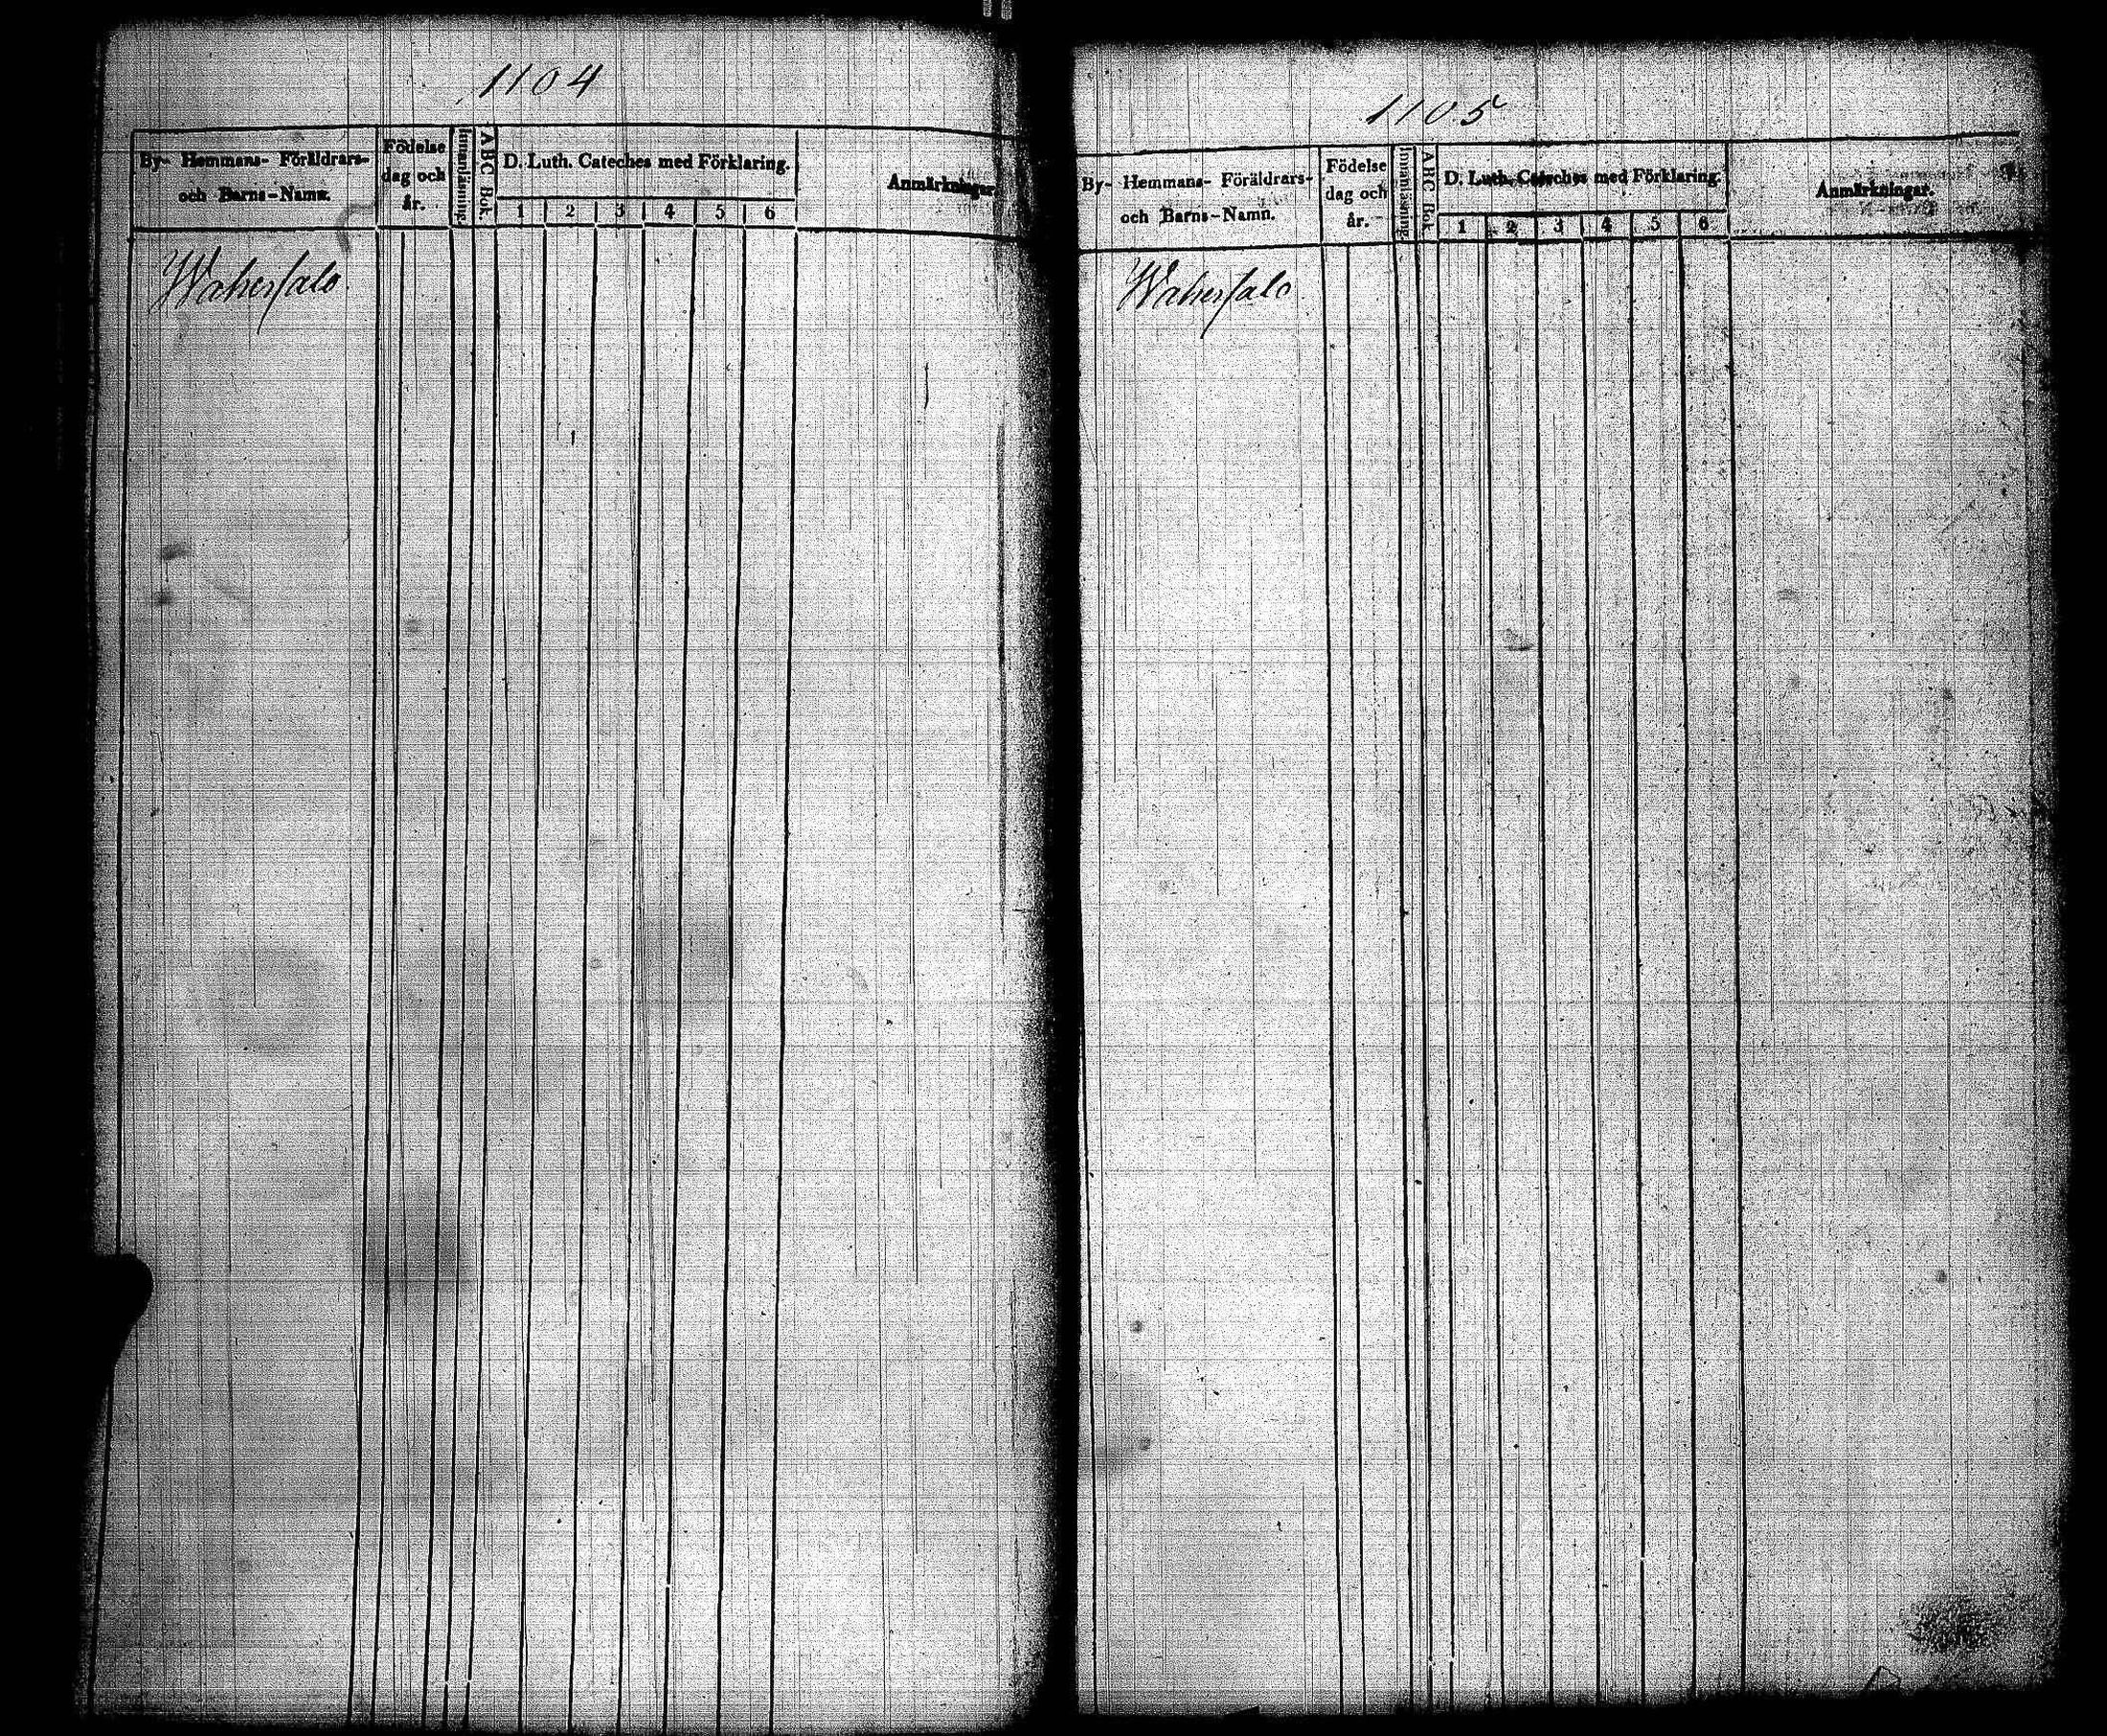 1104
By- Hemmans- Föräldrars-
och Barns-Namn.
Födelse
dag och
år.
Innanläsning.
ABC Bok.
D. Luth. Cateches med Förklaring.
1 2 3 4 5 6
Anmärkningar.
Wahersalo
1105
By- Hemmans- Föräldrars-
och Barns-Namn.
Födelse
dag och
år.
Innanläsning.
ABC Bok.
D. Luth. Cateches med Förklaring.
1 2 3 4 5 6
Anmärkningar.
Wahersalo